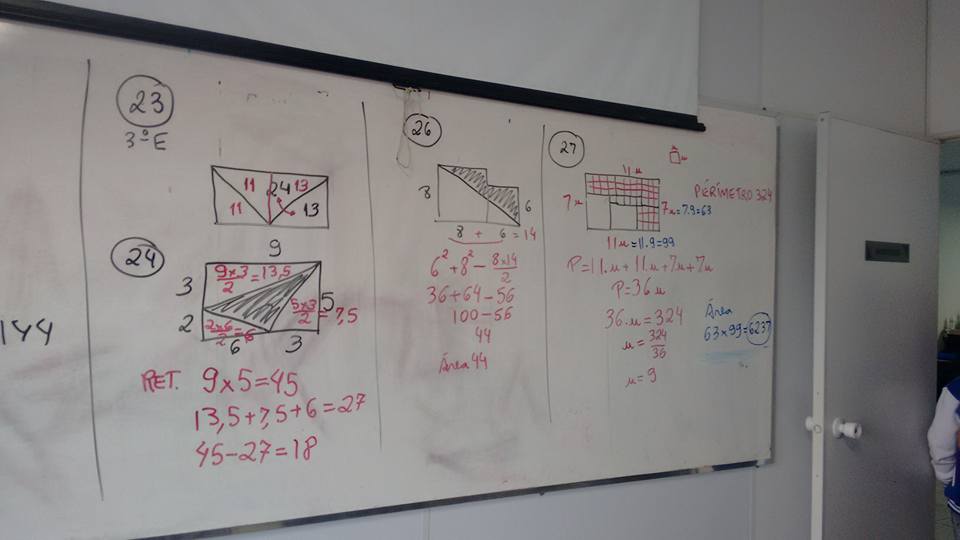 144
23
3ºE
11 24 13
11 13
24
9
3
9x3/2=13,5
5x3/2=7,5
5
2
2x6/2=6
6 3
RET. 9x5=45
13,5+7,5+6=27
45-27=18
26
8
6
8 + 6 = 14
6²+8²-8x14/2
36+64-56
100-56
44
Área 44
27
u
u
11u
PÉRÍMETRO 324
7u
7u=7.9=63
11u=11.9=99
P=11.u+11.u+7u+7u
P=36u
36.u=324
u=324/36
u=9
Área
63x99=6237